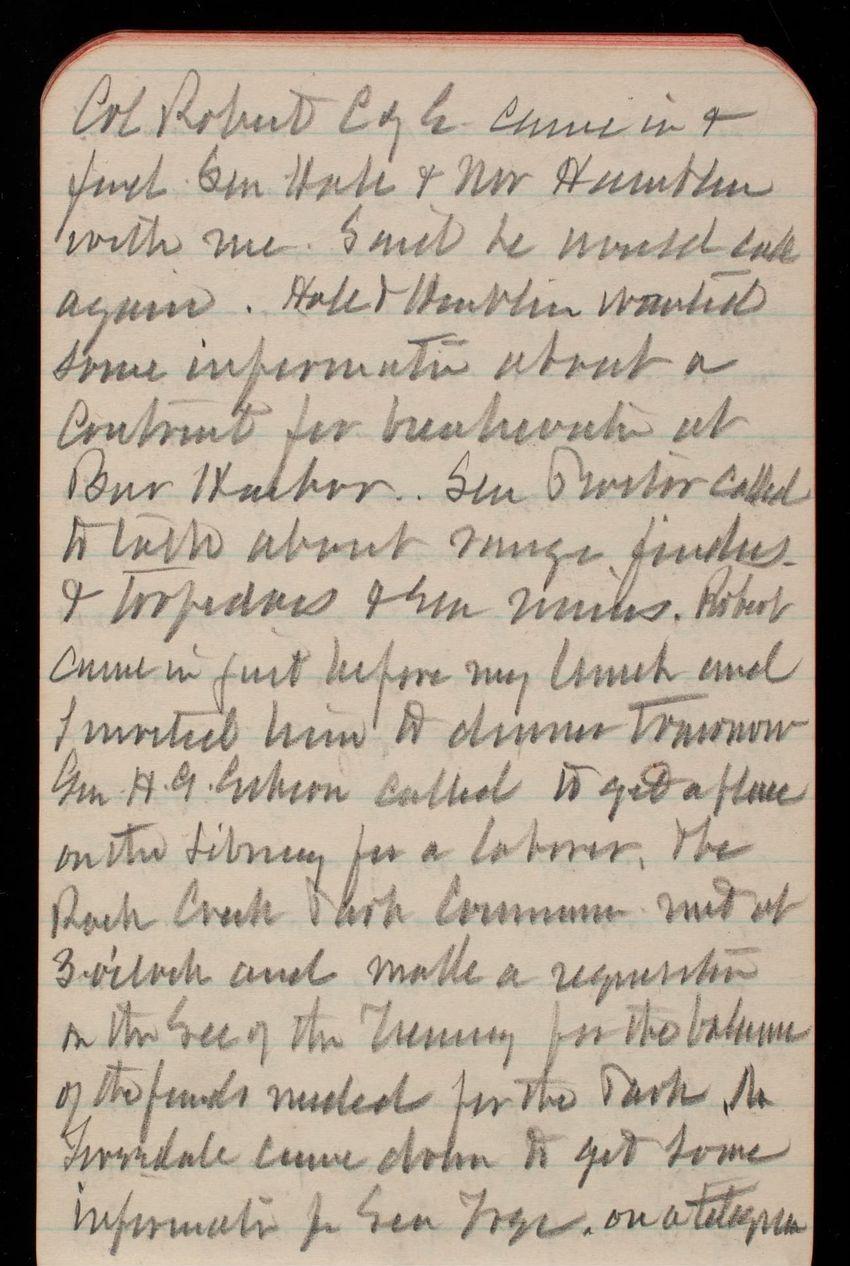 Col Robert C of E came in &
find Sen Hale & Mr Hamblin
with me. Said he would call
again. Hale & Hamblin wanted
some informatn about a
Contract for breakwater at
Bar Harbor.. Sen Proctor called
to talk about range finders
& torpedoes & Sea mines. Robert
came in just before my lunch and
I invited him to dinner tomorrow
Gen H.G. Gibson called to get a place
on the Library for a laborer. The
Rock Creek Park Commn met at
3 o'clock and made a requisition
on the Sec of the Treasury for the balance
of the funds needed for the Park.
Truesdale came down to get some
informatn fr Sen on a telegram